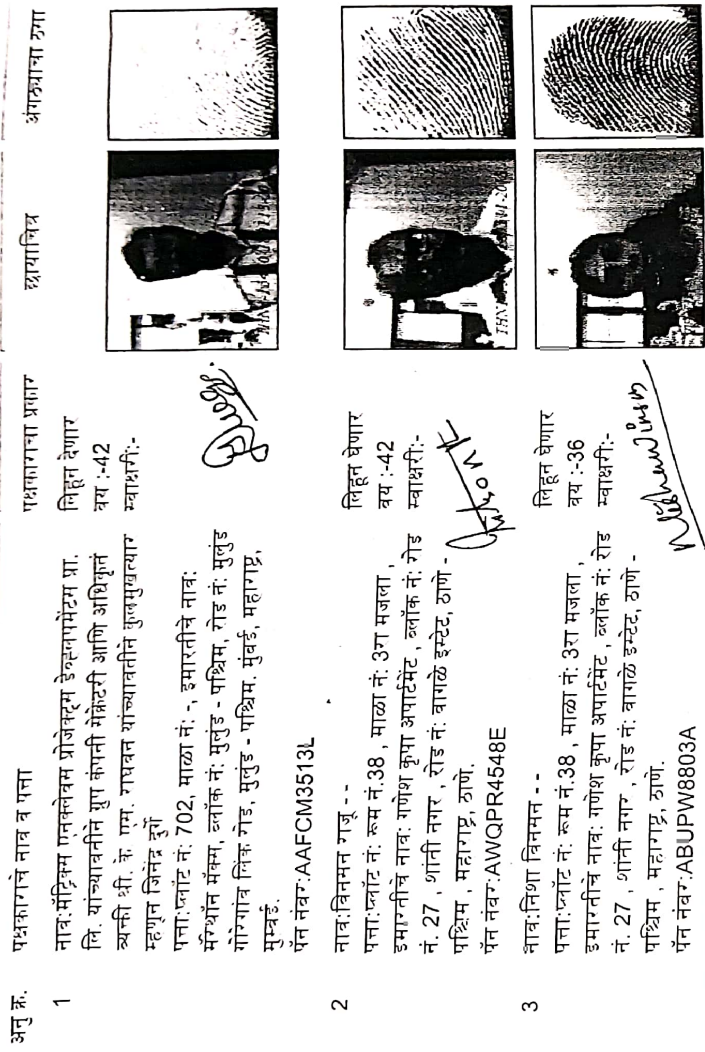 अनु क्र. पक्षकाराचे नाव व पत्ता पक्षकाराचा प्रकार छायाचित्र अंगठ्याचा ठसा
1
नाव:मॅट्रिक्स एनक्लेवस प्रोजेक्ट्स डेव्हलपमेंटस प्रा.
लि. यांच्यावतीने ग्रुप कंपनी सेक्रेटरी आणि अधिकृत
व्यक्ती श्री. के. एस. राघवन यांच्यावतीने कुलमुखत्यार
म्हणून जिनेंद्र दुर्गे
पत्ता:प्लॉट नं: 702, माळा नं: -, इमारतीचे नाव:
मॅरेथॉन मॅक्स, ब्लॉक नं: मुलुंड - पश्चिम, रोड नं: मुलुंड
गोरेगांव लिंक रोड, मुलुंड - पश्चिम, मुंबई, महाराष्ट्र,
मुम्बई.
पॅन नंबर:AAFCM3513L
लिहून देणार
वय :-42
स्वाक्षरी:-
2
नाव:विनसन राजू - -
पत्ता:प्लॉट नं: रूम नं.38 , माळा नं: 3रा मजला ,
इमारतीचे नाव: गणेश कृपा अपार्टमेंट , ब्लॉक नं: रोड
नं. 27 , शांती नगर , रोड नं: वागळे इस्टेट, ठाणे -
पश्चिम , महाराष्ट्र, ठाणे.
पॅन नंबर:AWQPR4548E
लिहून घेणार
वय :-42
स्वाक्षरी:-
3
नाव:निशा विनसन - -
पत्ता:प्लॉट नं: रूम नं.38 , माळा नं: 3रा मजला ,
इमारतीचे नाव: गणेश कृपा अपार्टमेंट , ब्लॉक नं: रोड
नं. 27 , शांती नगर , रोड नं: वागळे इस्टेट, ठाणे -
पश्चिम , महाराष्ट्र, ठाणे.
पॅन नंबर:ABUPW8803A
लिहून घेणार
वय :-36
स्वाक्षरी:-